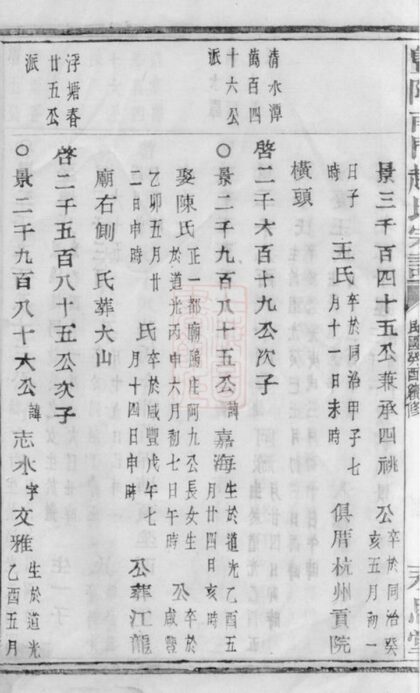 民國癸酉續修
景三千百四十五公兼承四祧 公卒於同治癸亥五月初一
日子時 王氏卒於同治甲子七月十三日未時 俱厝杭州貢院
橫頭
清水潭
萬百四
十六公
派
啓二千六百十九公次子
○景二千九百八十五公諱嘉海生於道光乙酉五月廿四日亥時
娶陳氏正一都廟隝庄阿九公長女生於道光丙申六月初七日午時 公卒於咸豐
乙卯五月廿二日申時 氏卒於咸豐戊午七月十四日申時 公葬江龍
廟右側 氏葬大山
浮塘春
廿五公
派
啓二千五百八十五公次子
○景二千九百八十六公諱志水字文雅生於道光乙酉五月